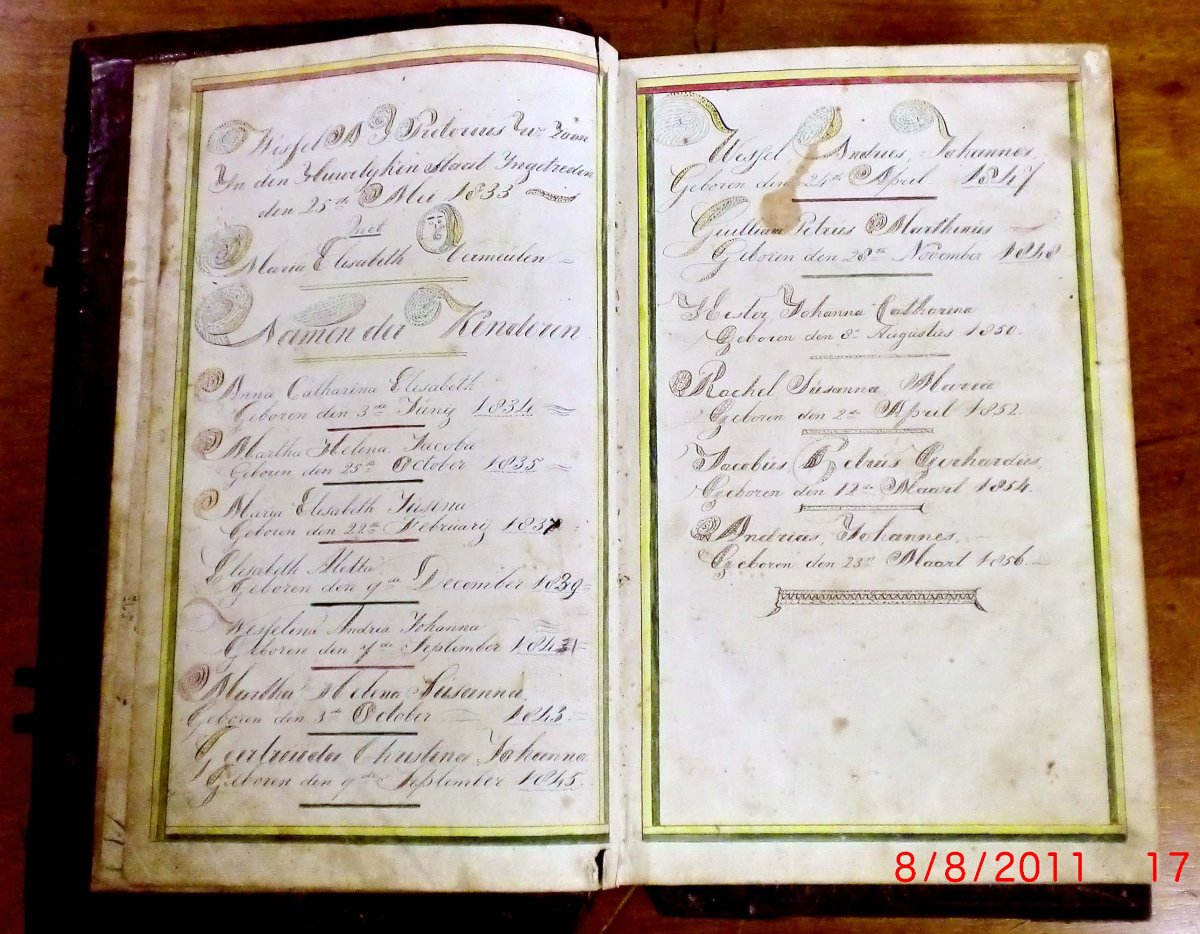 Wessel A J Pretorius Wz Zoon
In den Huwelyken Staat Ingetreden
den 25ste Mei 1833
Met
Maria Elisabeth Vermeulen
Namen der Kenderen
Anna Catharina Elisabeth
Geboren den 3de Junij 1834
Martha Helena Jacoba
Geboren den 25ste October 1835
Maria Elisabeth Susana
Geboren den 22ste Februarij 1837
Elisabeth Aletta
Geboren den 9de December 1839
Wesselina Andria Johanna
Geboren den 7de September 1841
Martha Helena Susanna
Geboren den 3de October 1843
Geertruida Christina Johanna
Geboren den 9de September 1845
Wessel Andries Johannes
Geboren den 24ste April 1847
Guilliam Petrus Marthinus
Geboren den 28ste November 1848
Hester Johanna Catharina
Geboren den 8ste Augustus 1850
Rachel Susanna Maria
Geboren den 2de April 1852
Jacobus Petrus Gerhardus
Geboren den 12de Maart 1854
Andrias Johannes
Geboren den 23ste Maart 1856
8/8/2011 17